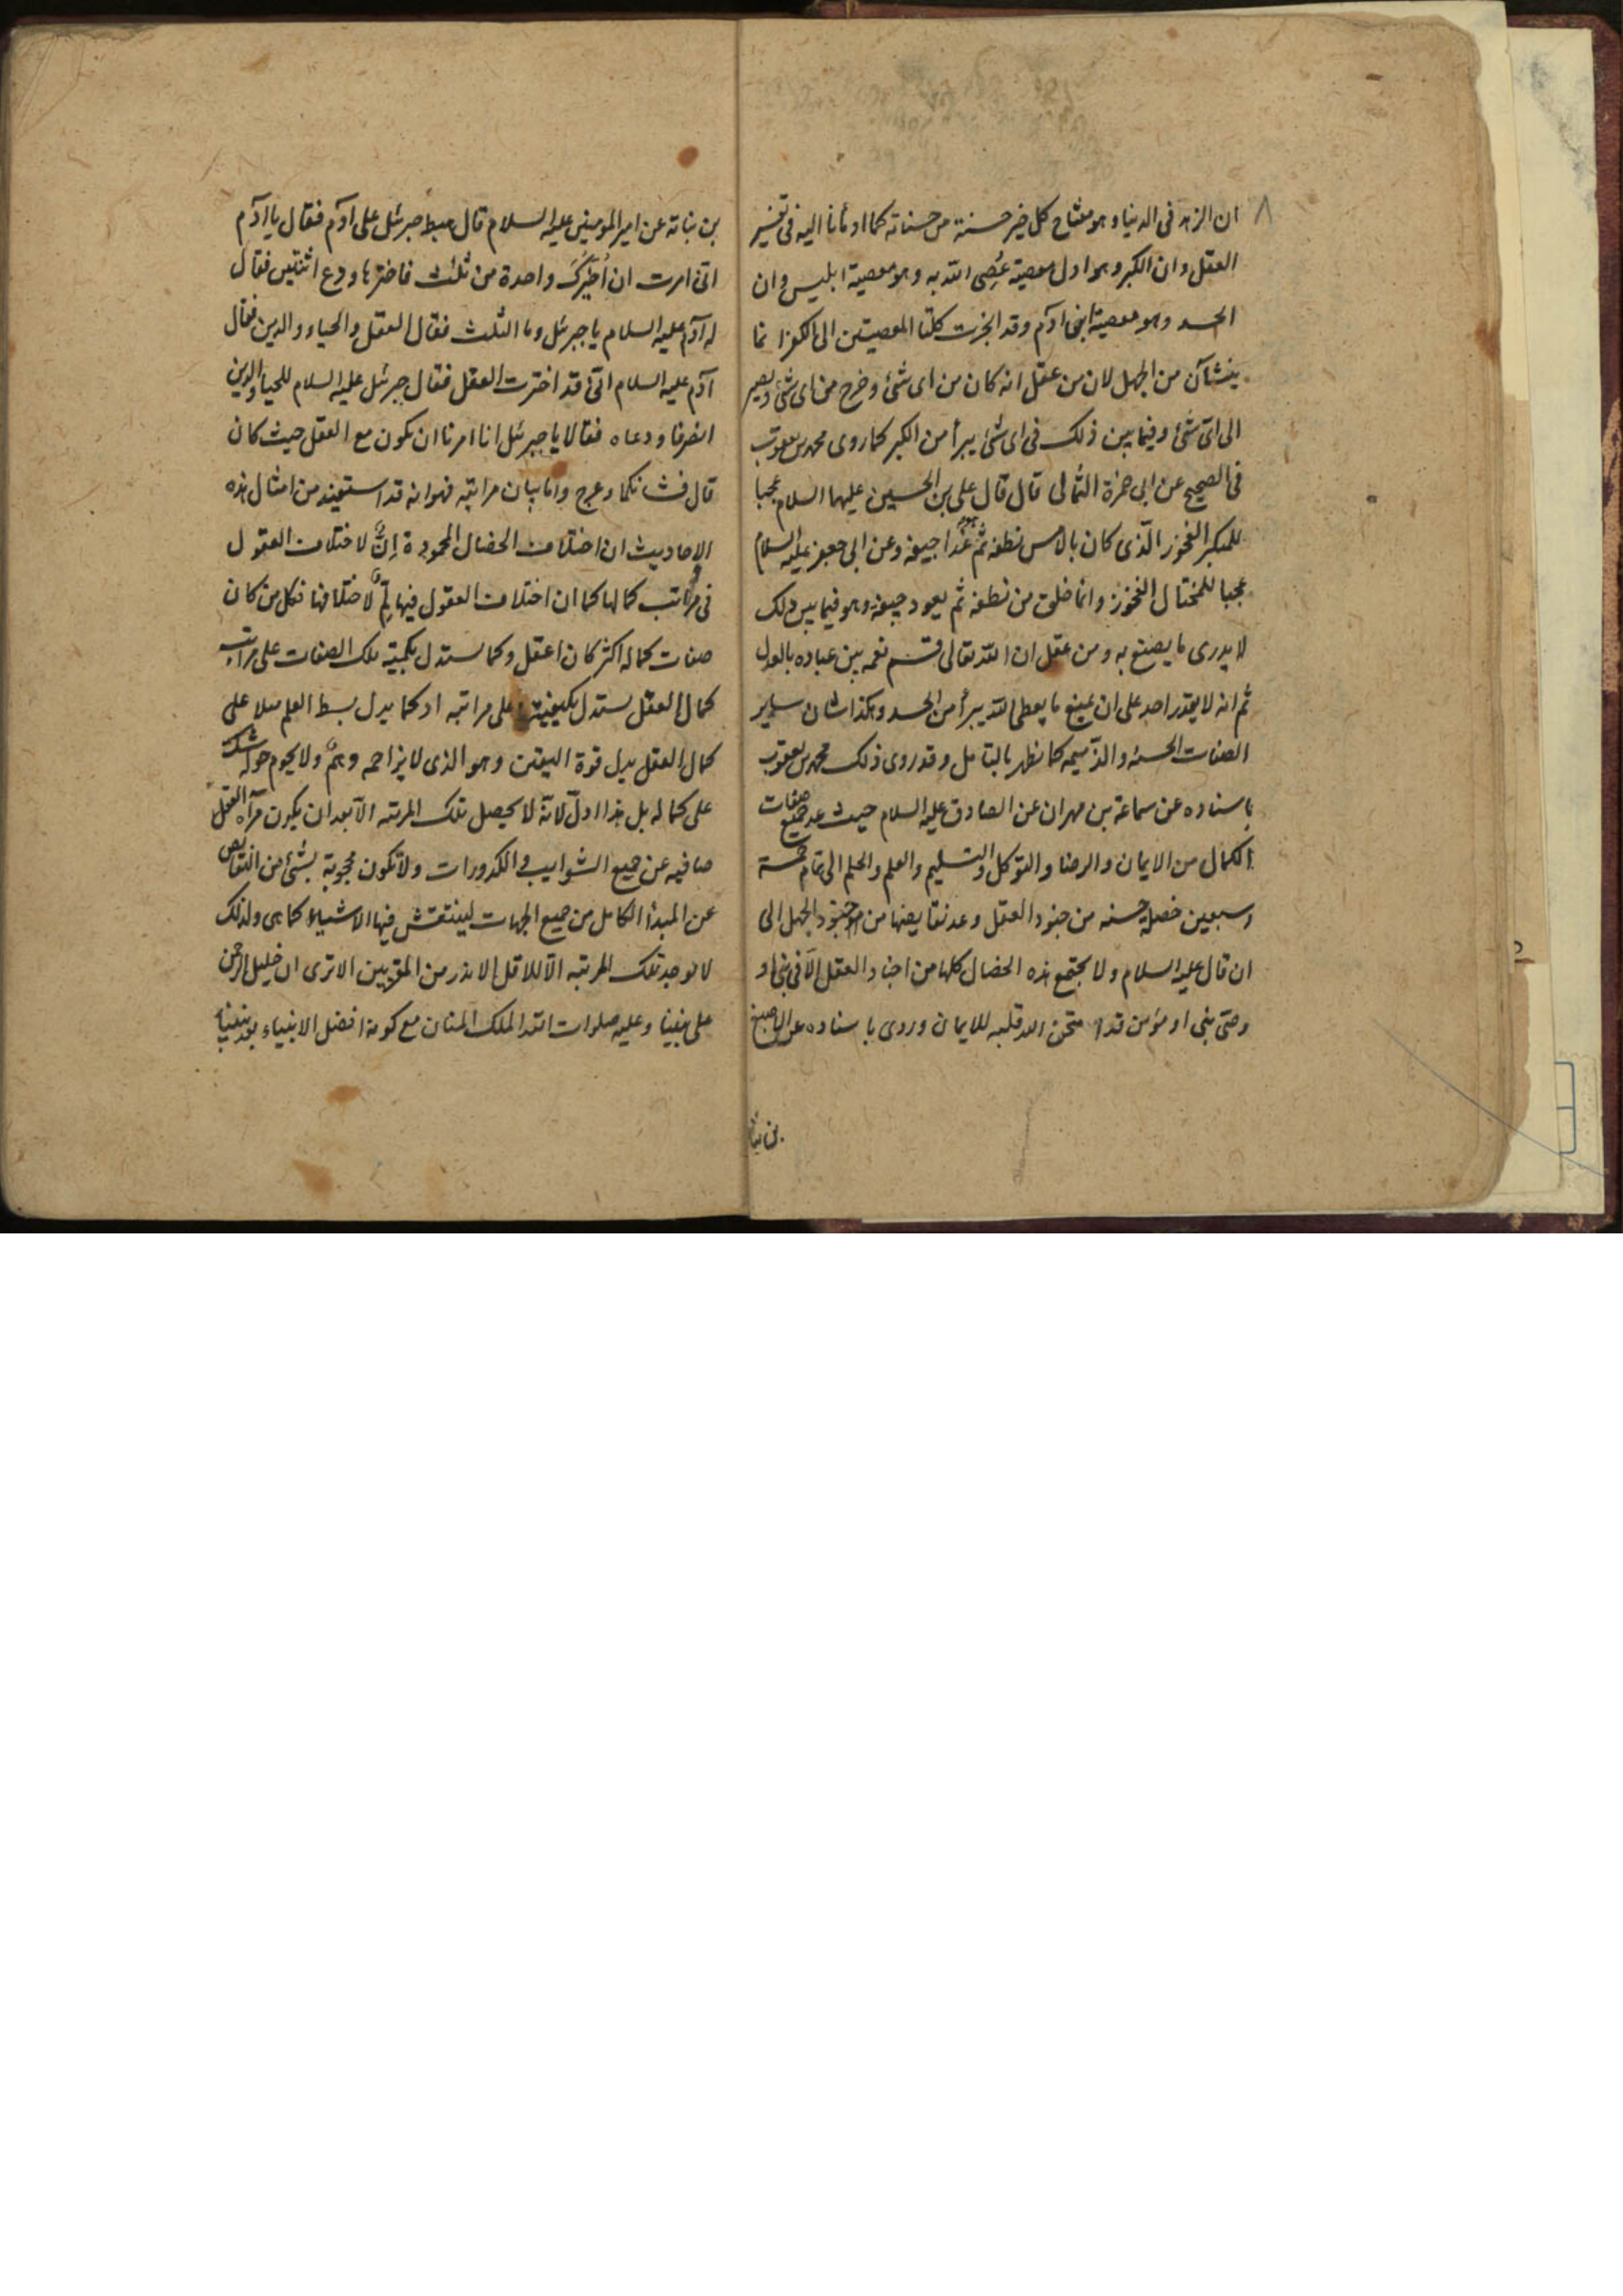 ٨
ان الزهد فى الدنيا وهو مفتاح كل خير حسنة من حسناته كما اومأنا اليه فى تفسير
العقل وان الكبر وهو اول معصية عُصِى الله به وهو معصية ابليس وان
الحسد وهو معصية ابنى آدم وقد انجزت كلتا المعصيتين الى الكفر انما
ينشآن من الجهل لان من عقل انه كان من اى شئ وخرج من اى شئ ويصير
الى اىّ شئ وفيما بين ذلك فى اى شئ يبرأ من الكبر كما روى محمد بن يعقوب
فى الصحيح عن ابى حمزة الثمالى قال قال على بن الحسين عليهما السلام عجبا
للمتكبر الفخور الّذى كان بالامس نطفة ثم هو غدا جيفة وعن ابى جعفر عليه السلام
عجبا للمختال الفخور وانما خلق من نطفة ثم يعود جيفة وهو فيما بين ذلك
لا يدرى ما يصنع به ومن عقل ان الله تعالى قسّم نعمه بين عباده بالعدل
ثم انه لا يقدر احد على ان يمنع ما يعطى الله يبرأ من الحسد وهكذا شان ساير
الصفات الحسنه والذميمه كما يظهر بالتامل وقد روى ذلك محمد بن يعقوب
باسناده عن سماعة بن مهران عن الصادق عليه السلام حيث عد جميع صفات
الكمال من الايمان والرضا والتوكل والتسليم والعلم والحلم الى تمام خمسة
وسبعين خصلة حسنه من جنود العقل وعد نقايضها من جنود الجهل الى
ان قال عليه السلام ولا يجتمع هذه الخصال كلها من اجناد العقل الّا فى نبى او
وصى نبى او مؤمن قد امتحن الله قلبه للايمان وروى باسناده عن الاصبغ
بن نباته
بن نباتة عن امير المؤمنين عليه السلام قال هبط جبرئيل على ادم فقال يا ادم
انى امرت ان اُخيّركَ واحدة من ثلث فاخترها ودع اثنتين فقال
له آدم عليه السلام يا جبرئيل وما الثلث فقال العقل والحياء والدين فقال
آدم عليه السلام انى قد اخترت العقل فقال جبرئيل عليه السلام للحياء والدين
انصرفا ودعاه فقالا يا جبرئيل انا امرنا ان نكون مع العقل حيث كان
قال فشانكما وعرج واما بيان مراتبه فهو انه قد استفيد من امثال هذه
الاحاديث ان اختلاف الخصال المحمودة اِنٌّ لاختلاف العقول
فى مراتب كمالها كما ان اختلاف العقول فيها لِمٌّ لاختلافها فكل من كان
صفات كماله اكثر كان اعقل وكما يستدل بكمية تلك الصفات على مراتب
كمال العقل يستدل بكيفيتها على مراتبه اذ كما يدل بسط العلم مثلا على
كمال العقل يدل قوة اليقين وهو الذى لا يزاحمه وهمٌ ولا يحوم حوله شك
على كماله بل هذا ادلّ لانّه لا يحصل تلك المرتبه الا بعد ان يكون مرآة العقل
صافيه عن جميع الشوايب والكدورات ولا تكون محجوبة بشئ من النقايص
عن المبدأ الكامل من جميع الجهات لينتقش فيها الاشياء كما هى ولذلك
لا يوجد تلك المرتبه الا للاقل الاندر من المقربين الا ترى ان خليل الرحمن
على نبينا وعليه صلوات الله الملك المنان مع كونه افضل الانبياء بعد نبينا